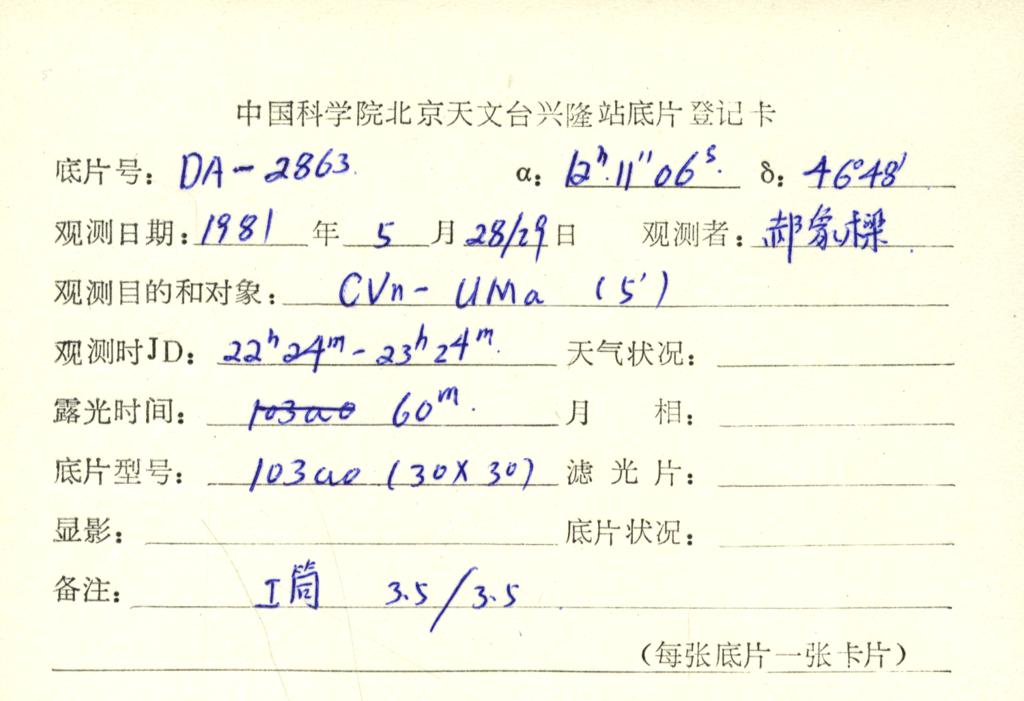 中国科学院北京天文台兴隆站底片登记卡
底片号: DA-2863. α: 12ʰ.11"06ˢ. δ: 46°48'
观测日期: 1981 年 5 月 28/29 日 观测者: 郝象樑
观测目的和对象: CVn- UMa (5')
观测时JD: 22ʰ24ᵐ-23ʰ24ᵐ. 天气状况:
露光时间: 103aO 60ᵐ. 月 相:
底片型号: 103aO (30X30) 滤光片:
显影: 底片状况:
备注: I筒 3.5/3.5
(每张底片一张卡片)